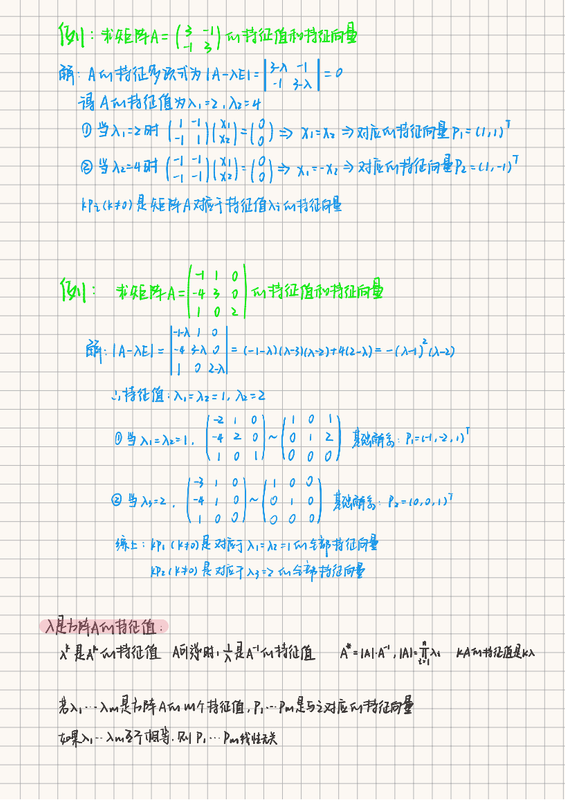 例：求矩阵A=(3 -1; -1 3)的特征值和特征向量
解：A的特征多项式为|A-λE|=|3-λ -1; -1 3-λ|=0
得A的特征值为λ₁=2, λ₂=4
① 当λ₁=2时 (1 -1; -1 1)(x₁; x₂)=(0; 0) ⇒ x₁=x₂ ⇒对应的特征向量P₁=(1,1)ᵀ
② 当λ₂=4时 (-1 -1; -1 -1)(x₁; x₂)=(0; 0) ⇒ x₁=-x₂ ⇒对应的特征向量P₂=(1,-1)ᵀ
kPᵢ(k≠0)是矩阵A对应于特征值λᵢ的特征向量
例：求矩阵A=(-1 1 0; -4 3 0; 1 0 2)的特征值和特征向量
解：|A-λE|=|-1-λ 1 0; -4 3-λ 0; 1 0 2-λ|=(-1-λ)(λ-3)(λ-2)+4(2-λ)=-(λ-1)²(λ-2)
∴特征值：λ₁=λ₂=1, λ₂=2
① 当λ₁=λ₂=1, (-2 1 0; -4 2 0; 1 0 1)~(1 0 1; 0 1 2; 0 0 0) 基础解系：P₁=(-1,-2,1)ᵀ
② 当λ₃=2, (-3 1 0; -4 1 0; 1 0 0)~(1 0 0; 0 1 0; 0 0 0) 基础解系：P₂=(0,0,1)ᵀ
综上：kP₁(k≠0)是对应于λ₁=λ₂=1的全部特征向量
kP₂(k≠0)是对应于λ₃=2的全部特征向量
λ是方阵A的特征值：
λᵏ是Aᵏ的特征值 A可逆时，1/λ是A⁻¹的特征值 A*=|A|·A⁻¹, |A|=∏ⁿᵢ₌₁λᵢ kA的特征值是kλ
若λ₁…λm是方阵A的m个特征值，P₁…Pm是与之对应的特征向量
如果λ₁…λm互不相等，则P₁…Pm线性无关